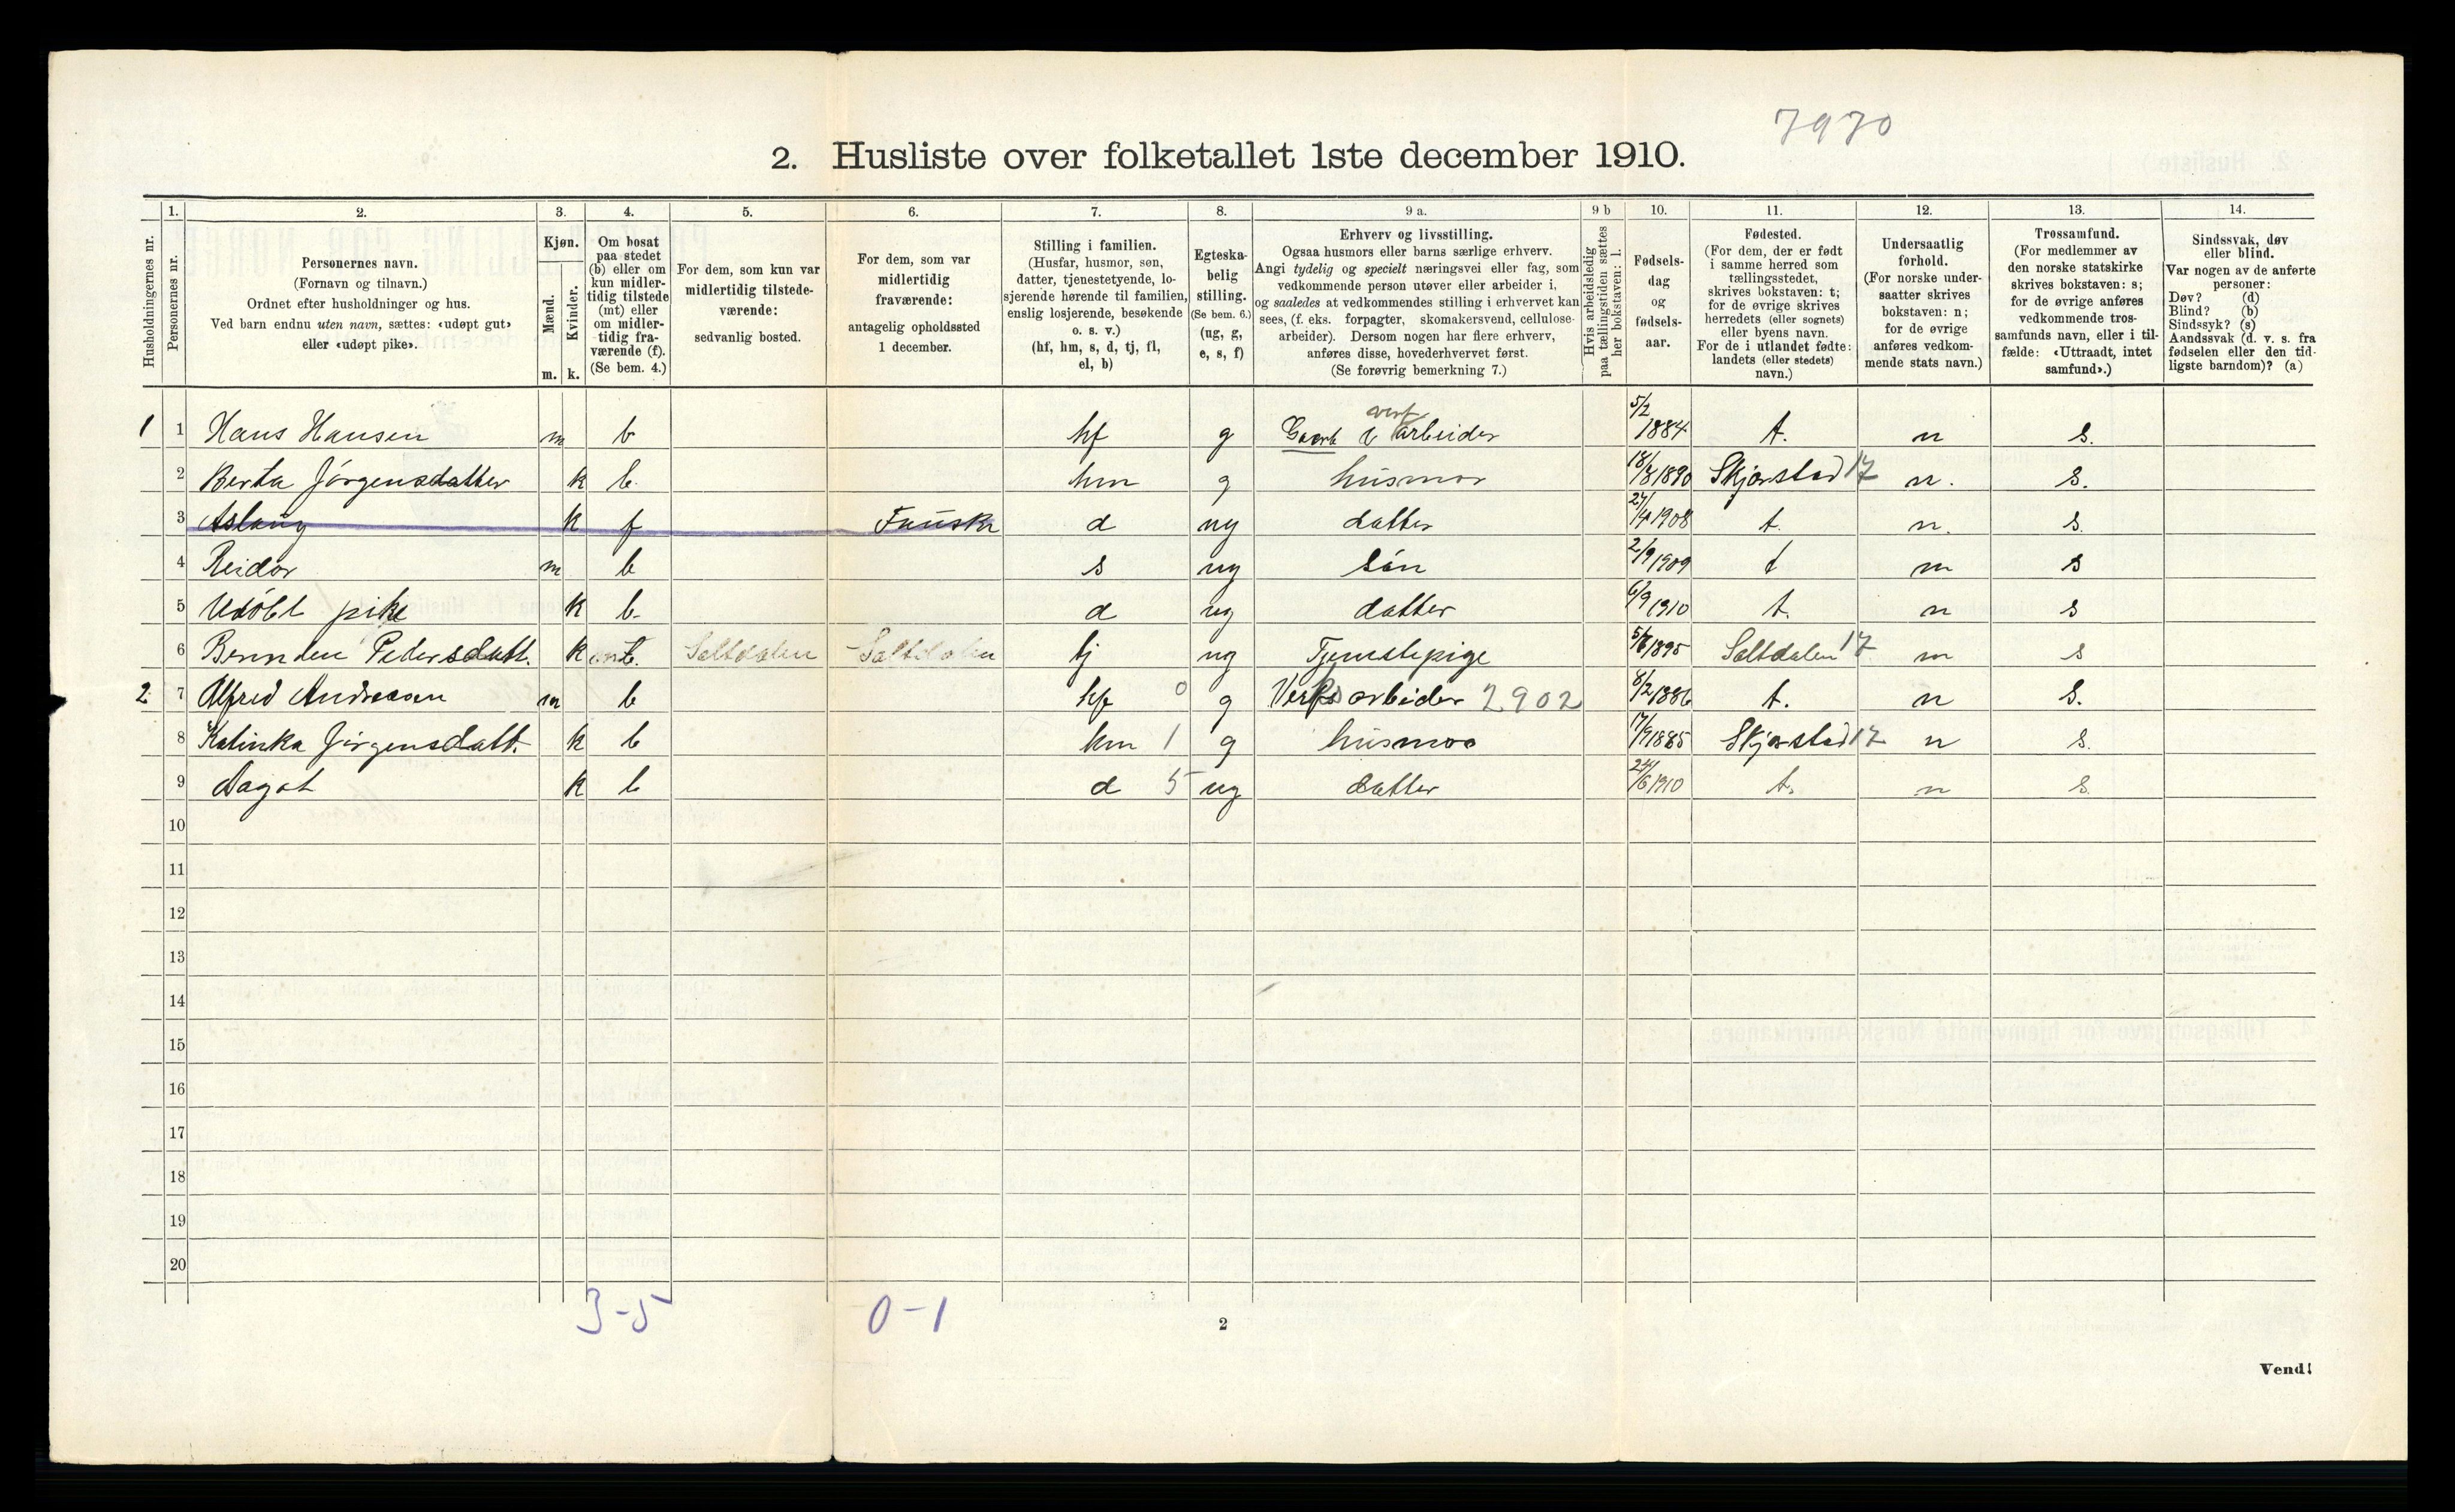 7970
2. Husliste over folketallet 1ste december 1910.
1. 2. 3. 4. 5. 6. 7. 8. 9 a. 9 b 10. 11. 12. 13. 14.
Husholdningernes nr.
Personernes nr.
Personernes navn.
(Fornavn og tilnavn.)
Ordnet efter husholdninger og hus.
Ved barn endnu uten navn, sættes: «udøpt gut»
eller «udøpt pike».
Kjøn.
Mænd.
Kvinder.
m. k.
Om bosat
paa stedet
(b) eller om
kun midler-
tidig tilstede
(mt) eller
om midler-
tidig fra-
værende (f).
(Se bem. 4.)
For dem, som kun var
midlertidig tilstede-
værende:
sedvanlig bosted.
For dem, som var
midlertidig
fraværende:
antagelig opholdssted
1 december.
Stilling i familien.
(Husfar, husmor, søn,
datter, tjenestetyende, lo-
sjerende hørende til familien,
enslig losjerende, besøkende
o. s. v.)
(hf, hm, s, d, tj, fl,
el, b)
Egteska-
belig
stilling.
(Se bem. 6.)
(ug, g,
e, s, f)
Erhverv og livsstilling.
Ogsaa husmors eller barns særlige erhverv.
Angi tydelig og specielt næringsvei eller fag, som
vedkommende person utøver eller arbeider i,
og saaledes at vedkommendes stilling i erhvervet kan
sees, (f. eks. forpagter, skomakersvend, cellulose-
arbeider). Dersom nogen har flere erhverv,
anføres disse, hovederhvervet først.
(Se forøvrig bemerkning 7.)
Hvis arbeidsledig
paa tællingstiden sættes
her bokstaven: l.
Fødsels-
dag
og
fødsels-
aar.
Fødested.
(For dem, der er født
i samme herred som
tællingsstedet,
skrives bokstaven: t;
for de øvrige skrives
herredets (eller sognets)
eller byens navn.
For de i utlandet fødte:
landets (eller stedets)
navn.)
Undersaatlig
forhold.
(For norske under-
saatter skrives
bokstaven: n;
for de øvrige
anføres vedkom-
mende stats navn.)
Trossamfund.
(For medlemmer av
den norske statskirke
skrives bokstaven: s;
for de øvrige anføres
vedkommende tros-
samfunds navn, eller i til-
fælde: «Uttraadt, intet
samfund».)
Sindssvak, døv
eller blind.
Var nogen av de anførte
personer:
Døv? (d)
Blind? (b)
Sindssyk? (s)
Aandssvak (d. v. s. fra
fødselen eller den tid-
ligste barndom)? (a)
1 1 Hans Hansen m b hf g verk arbeider 5/2 1884 t. n s.
2 Berta Jörgensdatter k b. hm g husmor 18/8 1890 Skjerstad 17 n. s.
3 Aslaug k f Fauske d ug datter 27/4 1908 t. n. s.
4 Reidar m b s ug sön 2/9 1909 t n s
5 Udöbt pike k b. d ug datter 6/9 1910 t. n s
6 Pedersdatt. k mt. Saltdalen Saltdalen tj ug Tjenstepige 5/6 1895 Saltdalen 17 n s
2 7 Alfred Andreasen m b hf 0 g Verks arbeider 2902 8/2 1886 t. n s.
8 Kalinka Jörgensdatt. k b hm 1 g husmor 17/9 1885 Skjerstad 17 n s.
9 Dagot k b d 5 ug datter 24/6 1910 t. n s.
10
11
12
13
14
15
16
17
18
19
20
3-5 0-1
2
Vend!